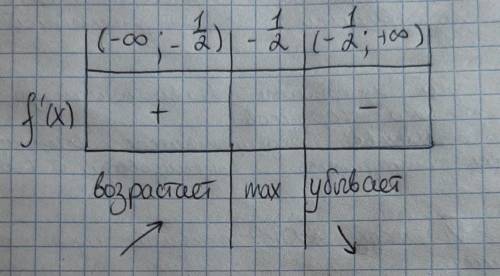 (-∞; -1/2) | -1/2 | (-1/2; +∞)
f'(x) + -
возрастает | max | убывает
↗ ↘